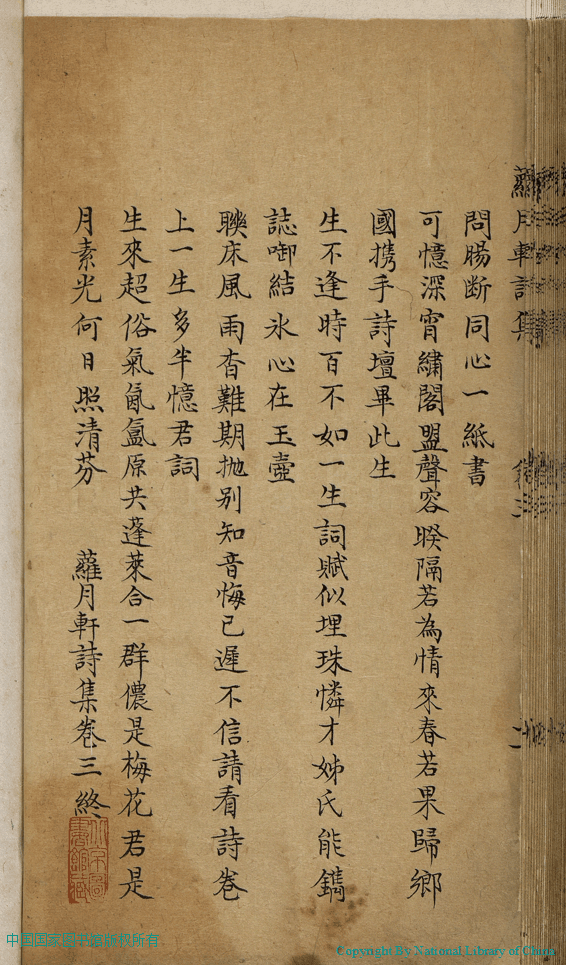 蘿月軒詩集
問腸断同心一紙書
可憶深宵繡閣盟聲容暌隔若為情來春若果歸鄉
國携手詩壇畢此生
生不逢時百不如一生詞賦似埋珠憐才姊氏能鐫
誌啣結氷心在玉壺
聯床風雨杳難期抛别知音悔已遲不信請看詩卷
上一生多半憶君詞
生來超俗氣氤氳原共蓬萊合一群儂是梅花君是
月素光何日照清芬　蘿月軒詩集卷三終
北京圖書館藏
中国国家图书馆版权所有
Copyright By National Library of China